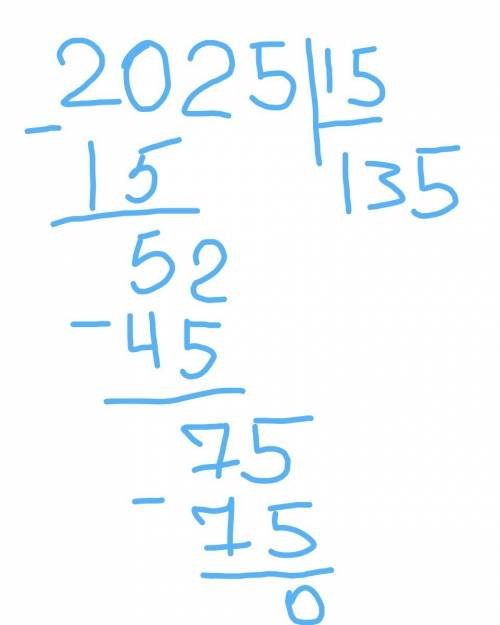 2025|15
- 15 135
52
- 45
75
- 75
0